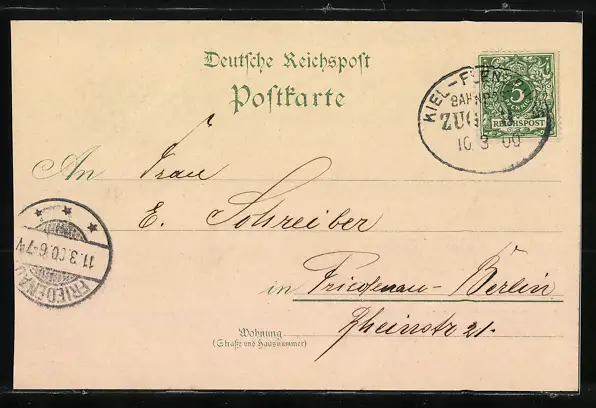 Deutsche Reichspost
Postkarte
KIEL-FLENS
BAHNP
ZUG
10 3 00
5
REICHSPOST
An Frau
E. Schreiber
in Friedenau-Berlin
Rheinstr 21.
Wohnung
(Straße und Hausnummer)
11.3.00.6-7V
FRIEDENAU